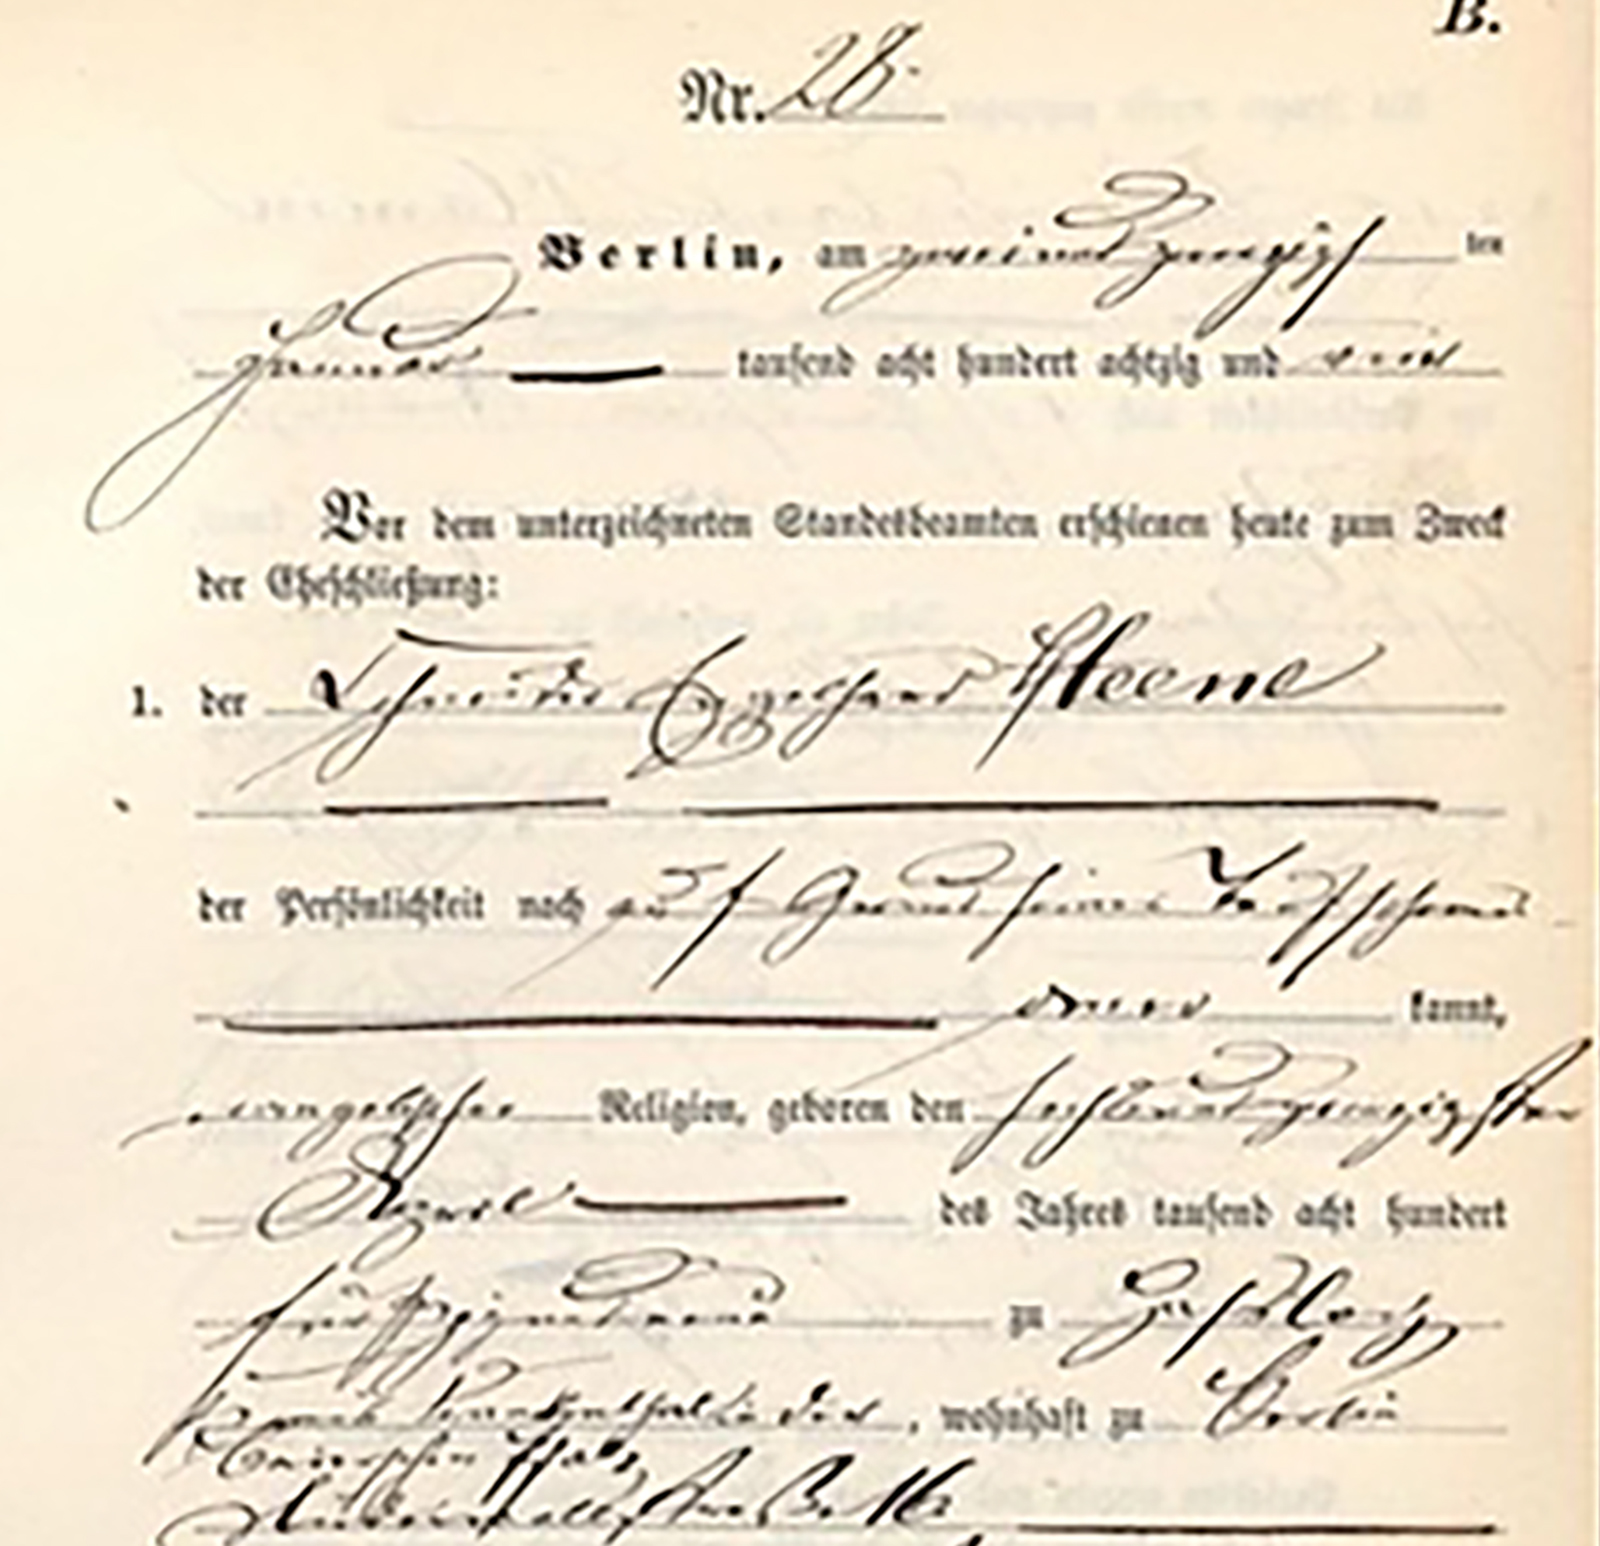 B.
Nr. 28.
Berlin, am zwei und zwanzigs ten
Januar tausend acht hundert achtzig und
Vor dem unterzeichneten Standesbeamten erschienen heute zum Zweck
der Eheschließung:
1. der Schneider Engelhard Steene
der Persönlichkeit nach auf Grund seines Taufscheins
kannt,
evangelischer Religion, geboren den sechs und zwanzigsten
April des Jahres tausend acht hundert
fünfzig und zu
Kreis Frankenthal in der, wohnhaft zu Berlin
Bairischen Pfalz,